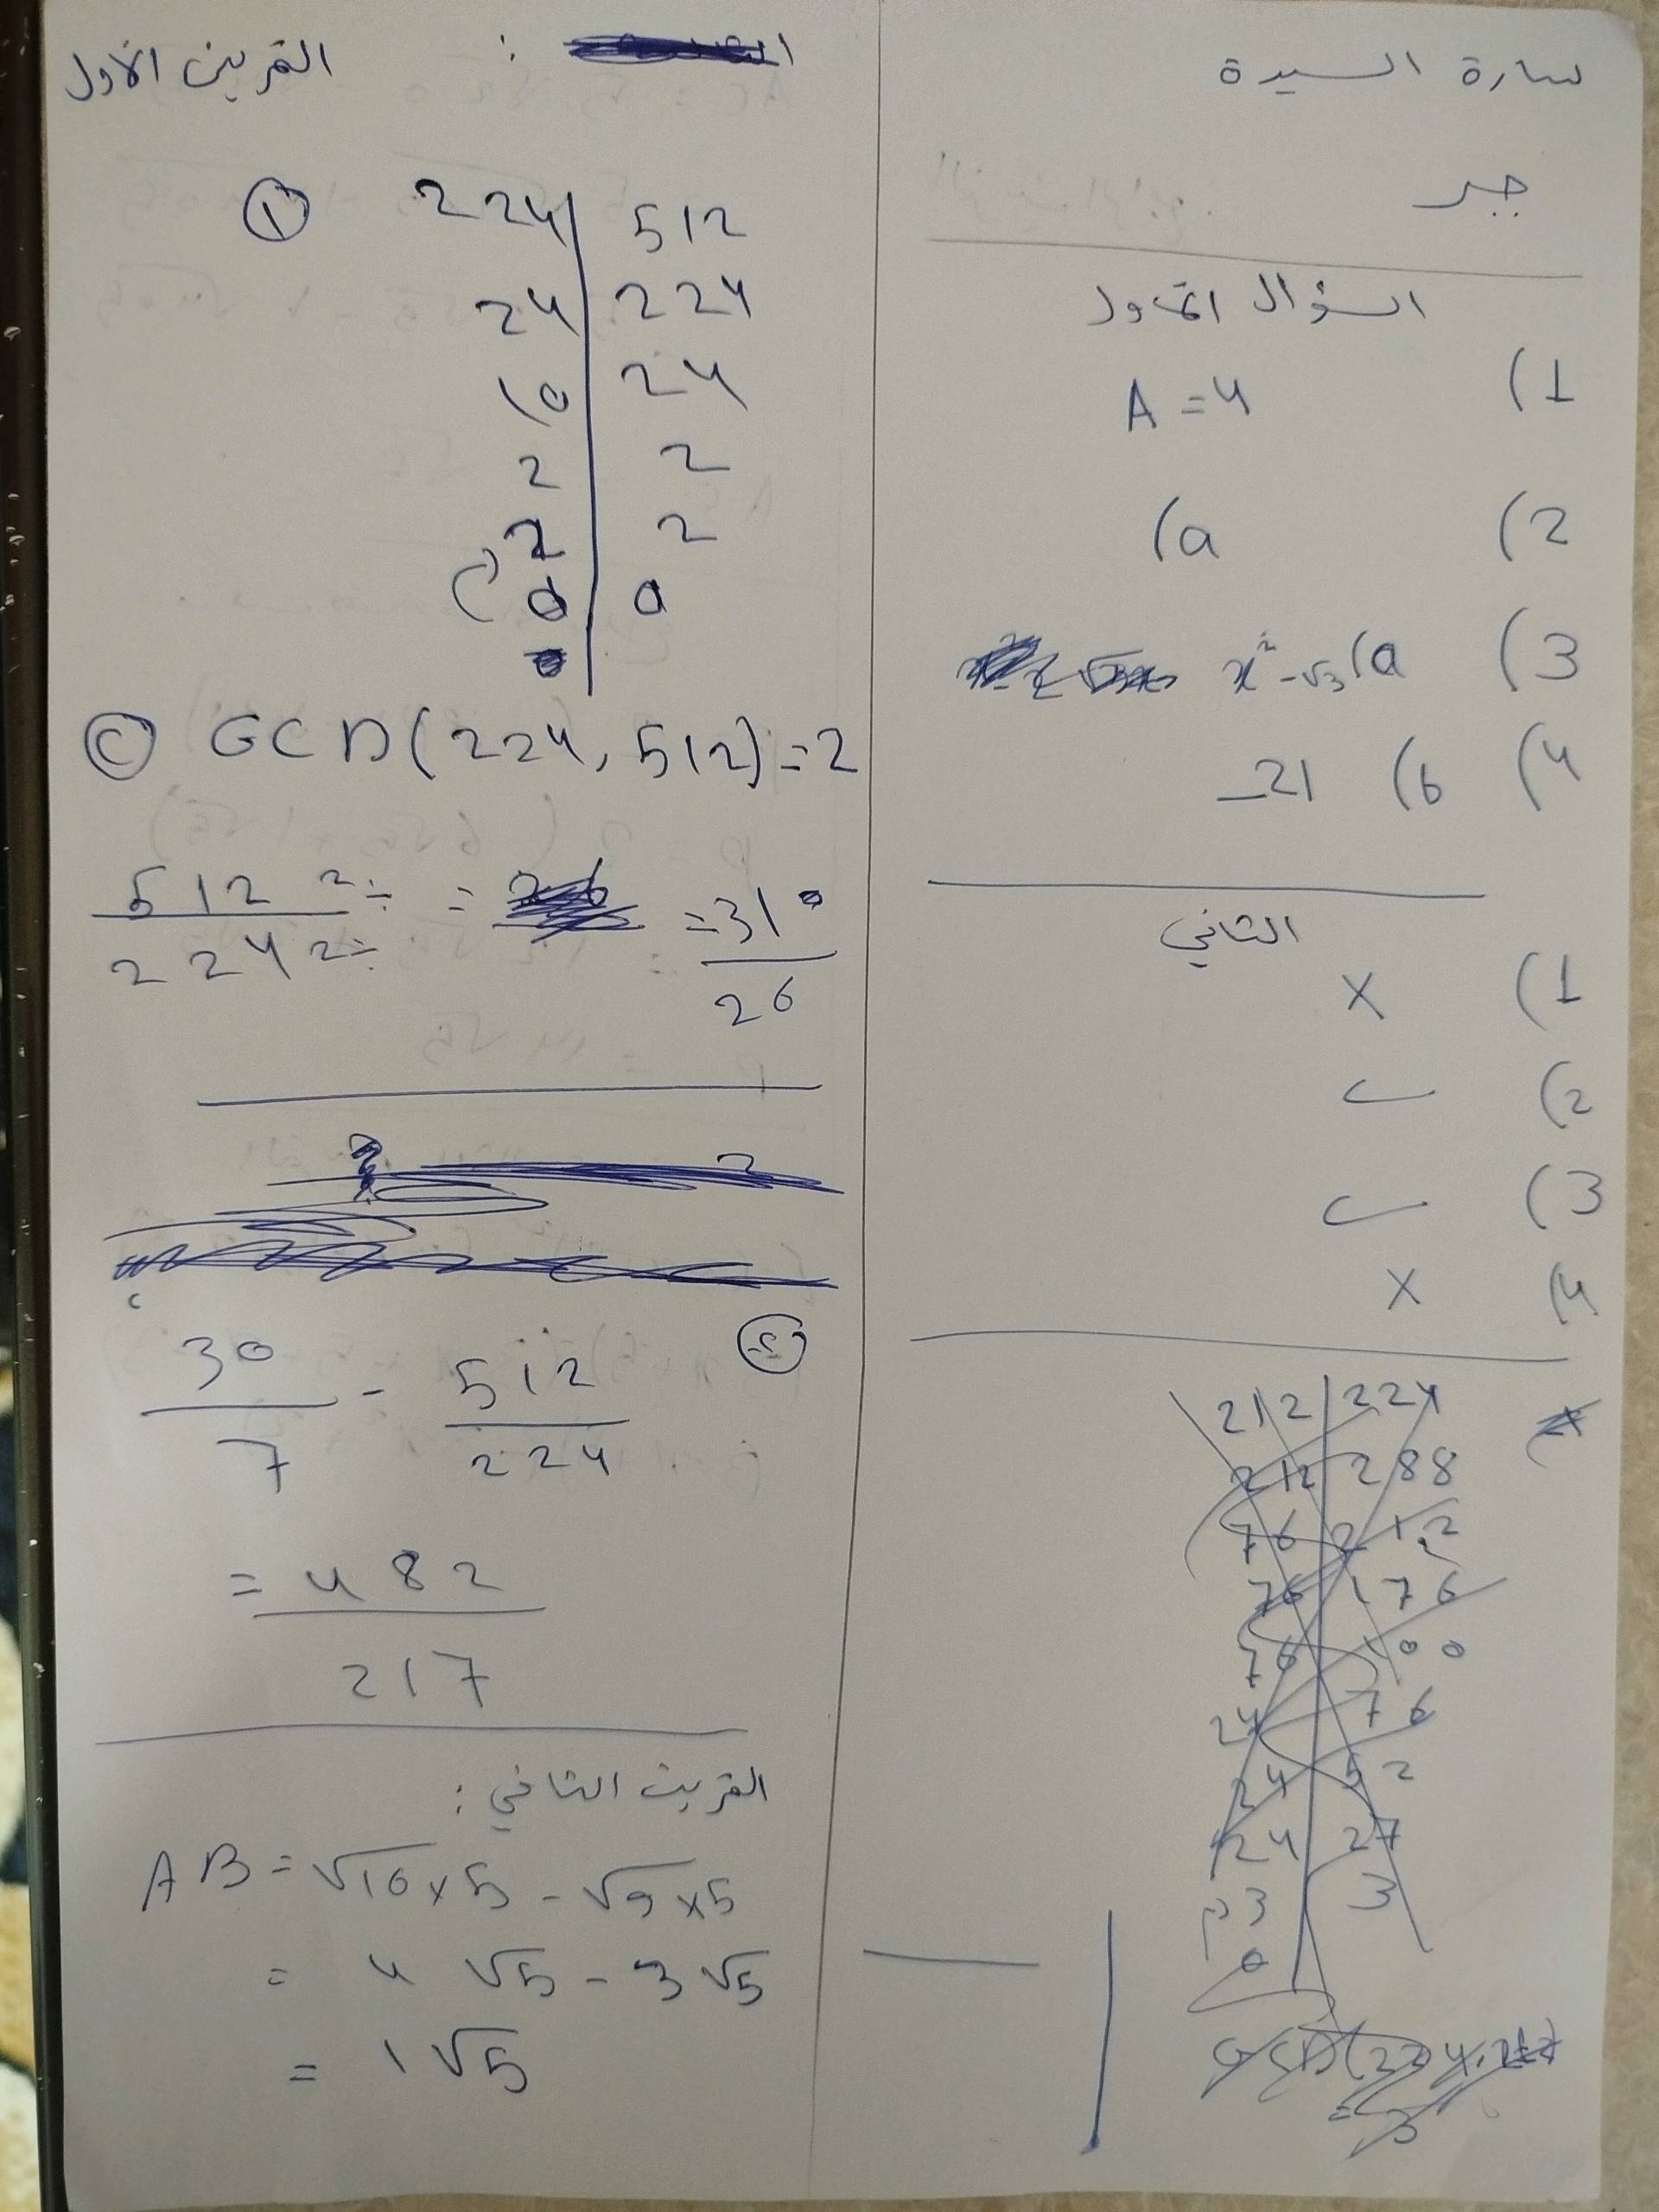 سارة السيدة
جبر
السؤال الأول
1) A = 4
2) a)
3) a) x² - √3
4) b) _21
الثاني
1) ×
2) ✓
3) ✓
4) ×
212 | 224
212 | 288
76 | 212
76 | 176
76 | 100
24 | 76
24 | 52
24 | 27
3 | 3
0
GCD(224, 212)
= 3
التمرين الأول :
① 224 | 512
24 | 224
10 | 24
2 | 2
2 | 2
0 | 0
② GCD(224, 512) = 2
512 2÷ = = 310
224 2÷ 26
30 - 512
7 224
= 482
217
التمرين الثاني :
AB = √16×5 - √9×5
= 4 √5 - 3 √5
= 1 √5